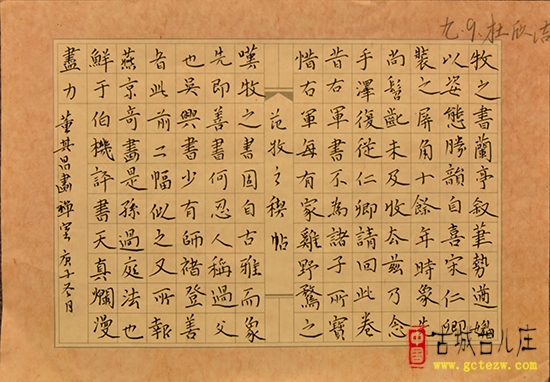 九.9.杜欣洁
牧之書蘭亭叙筆勢遒媚
以姿態勝韻自喜宋仁卿
裝之屏角十餘年時象先
尚髫齔未及收茲乃念
手澤復從仁卿請回此卷
昔右軍書不為諸子所寶
惜右軍每有家雞野鶩之
范牧之禊帖
嘆牧之書固自古雅而象
先即善書何忍人稱過父
也吳興書少有師褚登善
者此前二幅似之又所報
燕京奇畫是孫過庭法也
鮮于伯機評書天真爛漫
盡力 董其昌畫禪室 庚子冬月
中国 古城台儿庄
www.gctezw.com